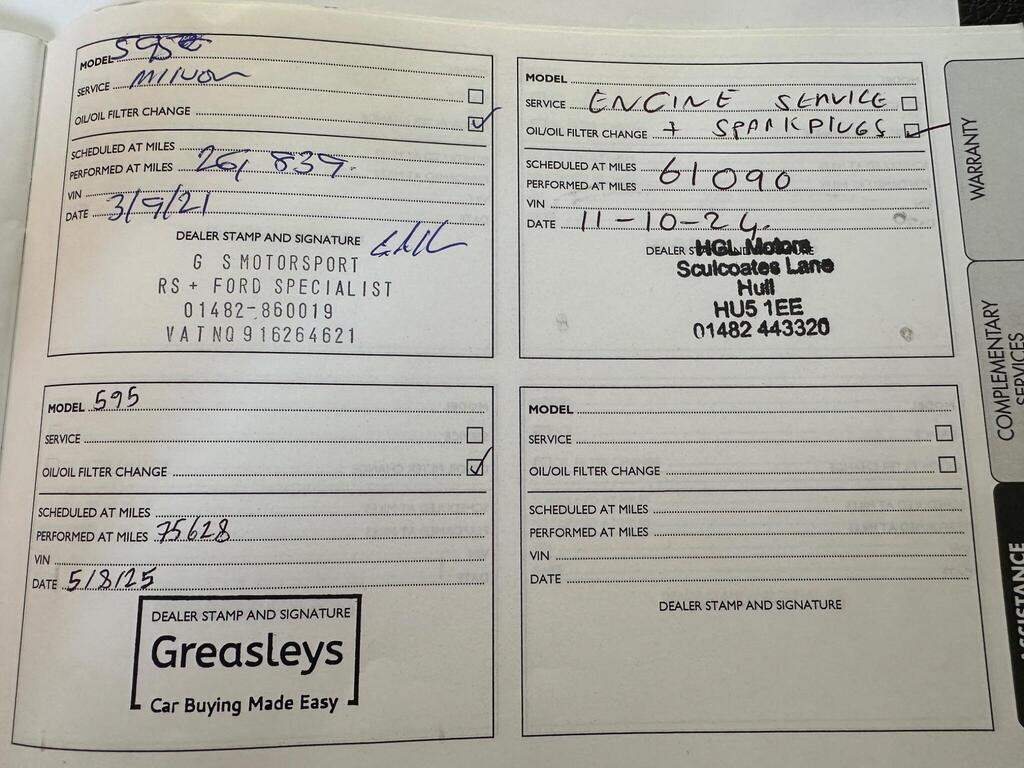 MODEL 595
SERVICE Minor
OIL/OIL FILTER CHANGE
SCHEDULED AT MILES
PERFORMED AT MILES 26,839.
VIN
DATE 3/9/21
DEALER STAMP AND SIGNATURE
G S MOTORSPORT
RS + FORD SPECIALIST
01482-860019
VAT NO 916264621
MODEL
SERVICE ENGINE SERVICE
OIL/OIL FILTER CHANGE + SPARKPLUGS
SCHEDULED AT MILES
PERFORMED AT MILES 61090
VIN
DATE 11-10-24.
DEALER STAMP AND SIGNATURE
HGL Motors
Sculcoates Lane
Hull
HU5 1EE
01482 443320
MODEL 595
SERVICE
OIL/OIL FILTER CHANGE
SCHEDULED AT MILES
PERFORMED AT MILES 75628
VIN
DATE 5/8/25
DEALER STAMP AND SIGNATURE
Greasleys
Car Buying Made Easy
MODEL
SERVICE
OIL/OIL FILTER CHANGE
SCHEDULED AT MILES
PERFORMED AT MILES
VIN
DATE
DEALER STAMP AND SIGNATURE
WARRANTY
COMPLEMENTARY
SERVICES
ASSISTANCE